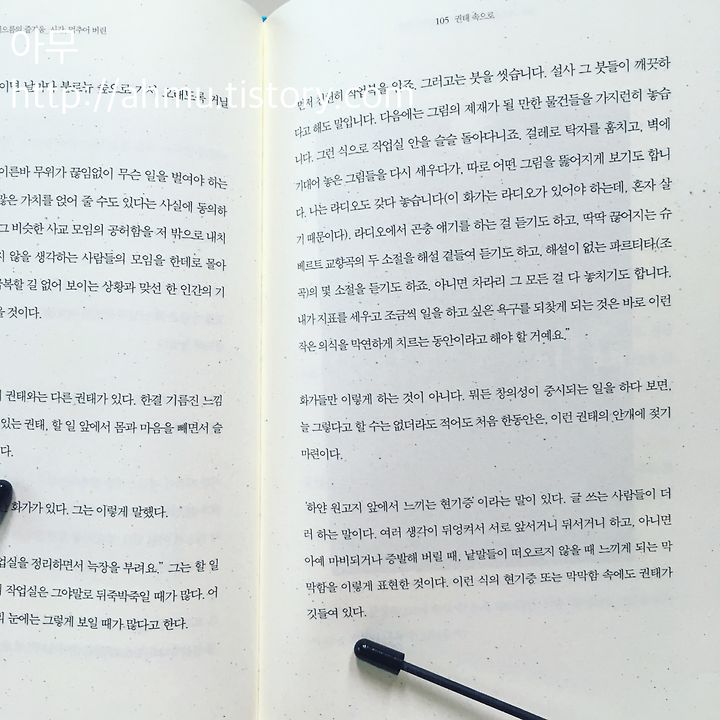 아무
http://ahmu.tistory.com
게으름의 즐거움 시간, 멈추어 버린
이른바 무위가 끊임없이 무슨 일을 벌여야 하는
많은 가치를 얹어 줄 수도 있다는 사실에 동의하
그 비슷한 사교 모임의 공허함을 저 밖으로 내치
지 않을 생각하는 사람들의 모임을 한데로 몰아
극복할 길 없어 보이는 상황과 맞선 한 인간의 기
을 것이다.
권태와는 다른 권태가 있다. 한결 기름진 느낌
있는 권태, 할 일 앞에서 몸과 마음을 빼면서 슬
다.
화가가 있다. 그는 이렇게 말했다.
업실을 정리하면서 늑장을 부려요.” 그는 할 일
작업실은 그야말로 뒤죽박죽일 때가 많다. 어
의 눈에는 그렇게 보일 때가 많다고 한다.
105 권태 속으로
작업실을 치우죠. 그러고는 붓을 씻습니다. 설사 그 붓들이 깨끗하
다고 해도 말입니다. 다음에는 그림의 제재가 될 만한 물건들을 가지런히 놓습
니다. 그런 식으로 작업실 안을 슬슬 돌아다니죠. 걸레로 탁자를 훔치고, 벽에
기대어 놓은 그림들을 다시 세우다가, 따로 어떤 그림을 뚫어지게 보기도 합니
다. 나는 라디오도 갖다 놓습니다(이 화가는 라디오가 있어야 하는데, 혼자 살
기 때문이다). 라디오에서 곤충 얘기를 하는 걸 듣기도 하고, 딱딱 끊어지는 슈
베르트 교향곡의 두 소절을 해설 곁들여 듣기도 하고, 해설이 없는 파르티타(조
곡)의 몇 소절을 듣기도 하죠. 아니면 차라리 그 모든 걸 다 놓치기도 합니다.
내가 지표를 세우고 조금씩 일을 하고 싶은 욕구를 되찾게 되는 것은 바로 이런
작은 의식을 막연하게 치르는 동안이라고 해야 할 거예요.”
화가들만 이렇게 하는 것이 아니다. 뭐든 창의성이 중시되는 일을 하다 보면,
늘 그렇다고 할 수는 없더라도 적어도 처음 한동안은, 이런 권태의 안개에 젖기
마련이다.
‘하얀 원고지 앞에서 느끼는 현기증’ 이라는 말이 있다. 글 쓰는 사람들이 더
러 하는 말이다. 여러 생각이 뒤엉켜서 서로 앞서거니 뒤서거니 하고, 아니면
아예 마비되거나 증발해 버릴 때, 낱말들이 떠오르지 않을 때 느끼게 되는 막
막함을 이렇게 표현한 것이다. 이런 식의 현기증 또는 막막함 속에도 권태가
깃들여 있다.